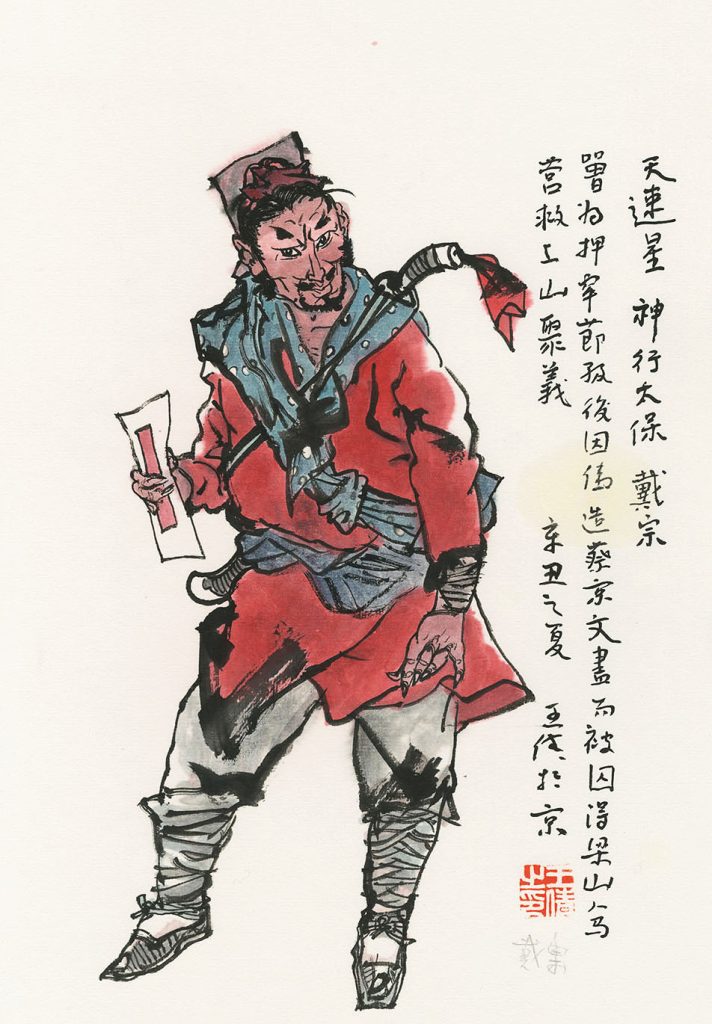 天速星 神行太保 戴宗
曾为押牢節級後因偽造蔡京文書而被囚得梁山人馬
营救上山聚義 辛丑之夏 王於京